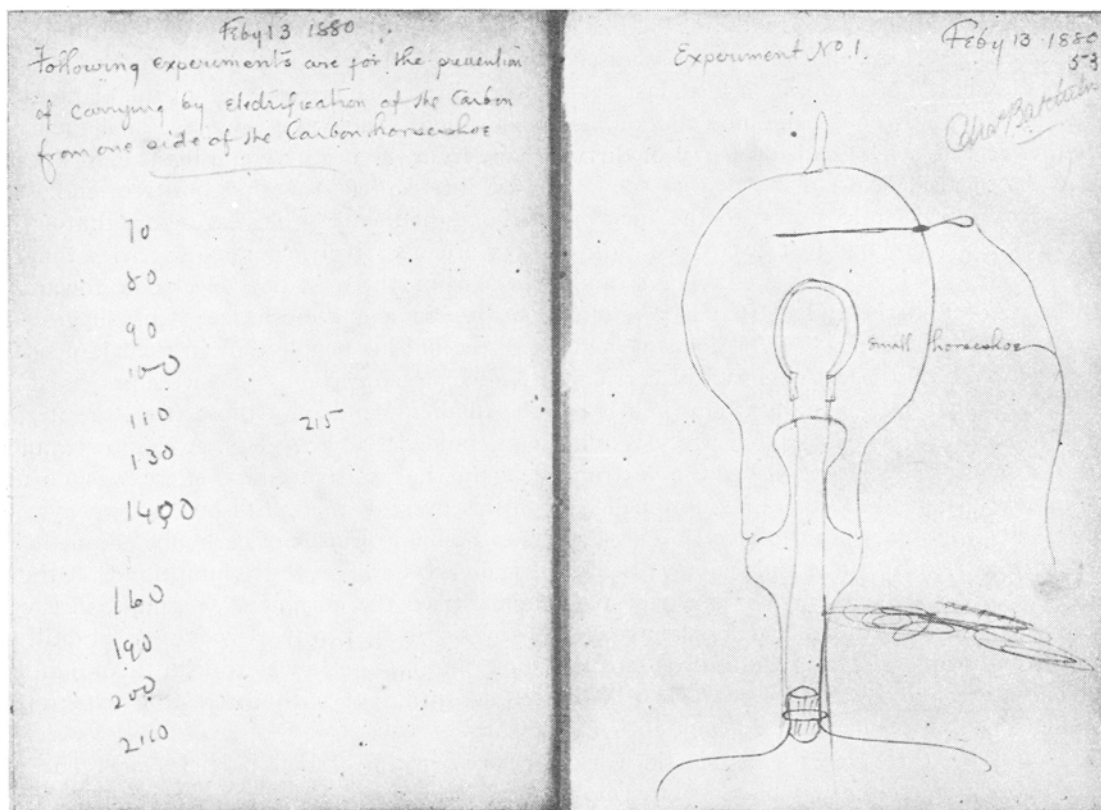 Feby 13 1880
Following experiments are for the prevention
of Carrying by Electrification of the Carbon
from one side of the Carbon horseshoe
70
80
90
100
110
215
130
1400
160
190
200
2100
Experiment No. 1.
Feby 13 1880
53
small horseshoe